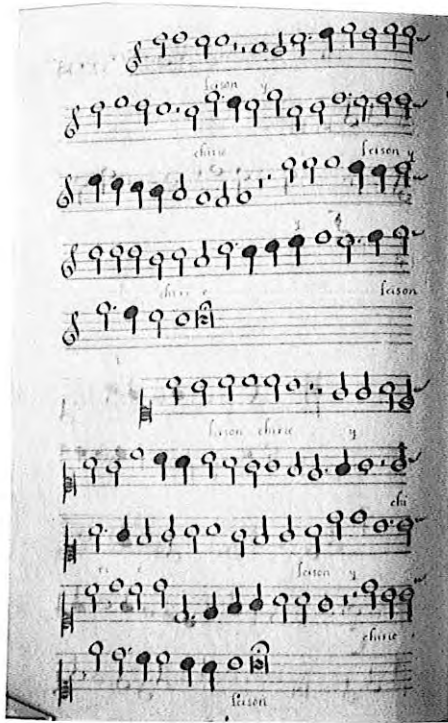 leison y
chirie leison y
chirie e leison
leison chirie y
chi
ri e leison y
chirie
leison